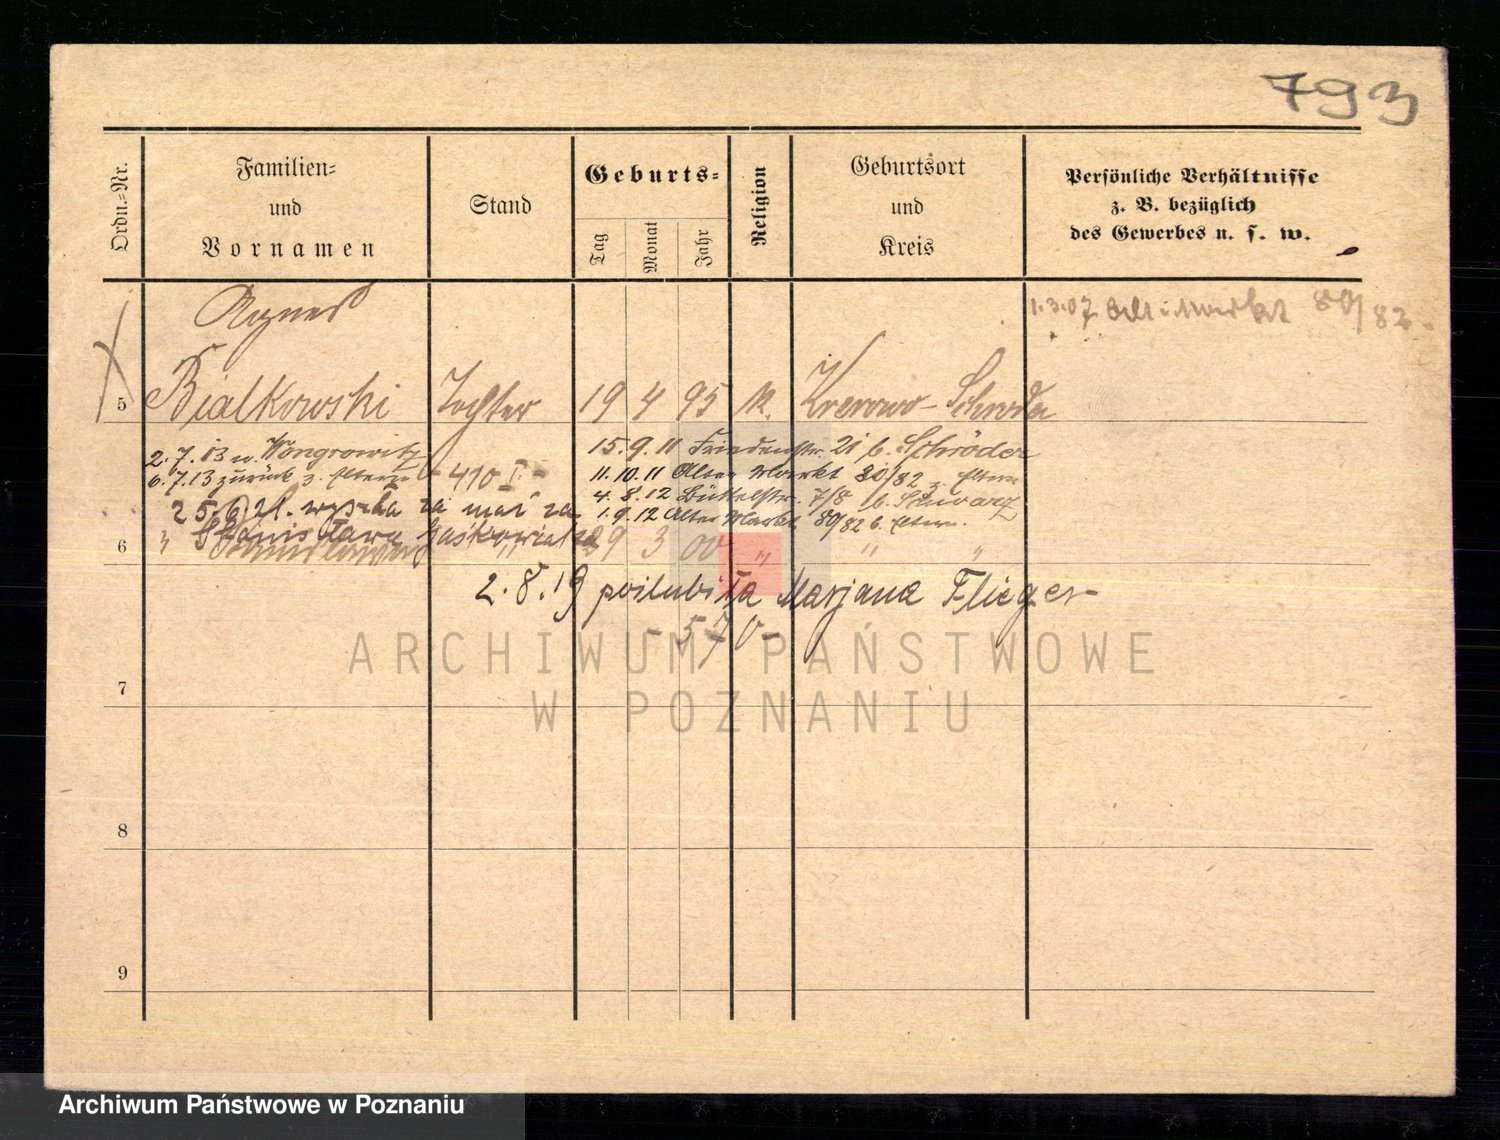 793
Ordn.=Nr.
Familien=
und
Vornamen
Stand
Geburts=
Tag
Monat
Jahr
Religion
Geburtsort
und
Kreis
Persönliche Verhältnisse
z. B. bezüglich
des Gewerbes u. s. w.
1.3.07 Alt. Markt 80/82.
Agnes
5 Bialkowski Tochter 19 4 95 k. Krerowo - Schroda
2.7.13 n. Wongrowitz
6.7.13 zurück z. Eltern - 410 I -
15.9.11 Friedenstr. 21 b. Schröder
11.10.11 Alter Markt 80/82 z. Eltern
4.8.12 Büttelstr. 7/8 b. Schwarz
1.9.12 Alter Markt 80/82 b. Eltern.
25.6.21. wyszła za mąż za
Stanisława Jaśkowiaka
6 " Stanislawa " 29 3 00 " " "
2.8.19 poślubiła Marjana Flieger
- 570 -
7
8
9
ARCHIWUM PAŃSTWOWE
W POZNANIU
Archiwum Państwowe w Poznaniu